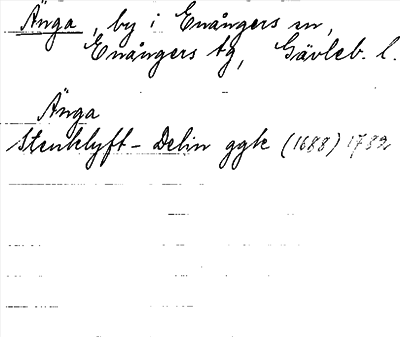 Änga, by i Enångers sn,
Enångers tg, Gävleb. l.
Änga
Stenklyft - Delin ggk (1688) 1782